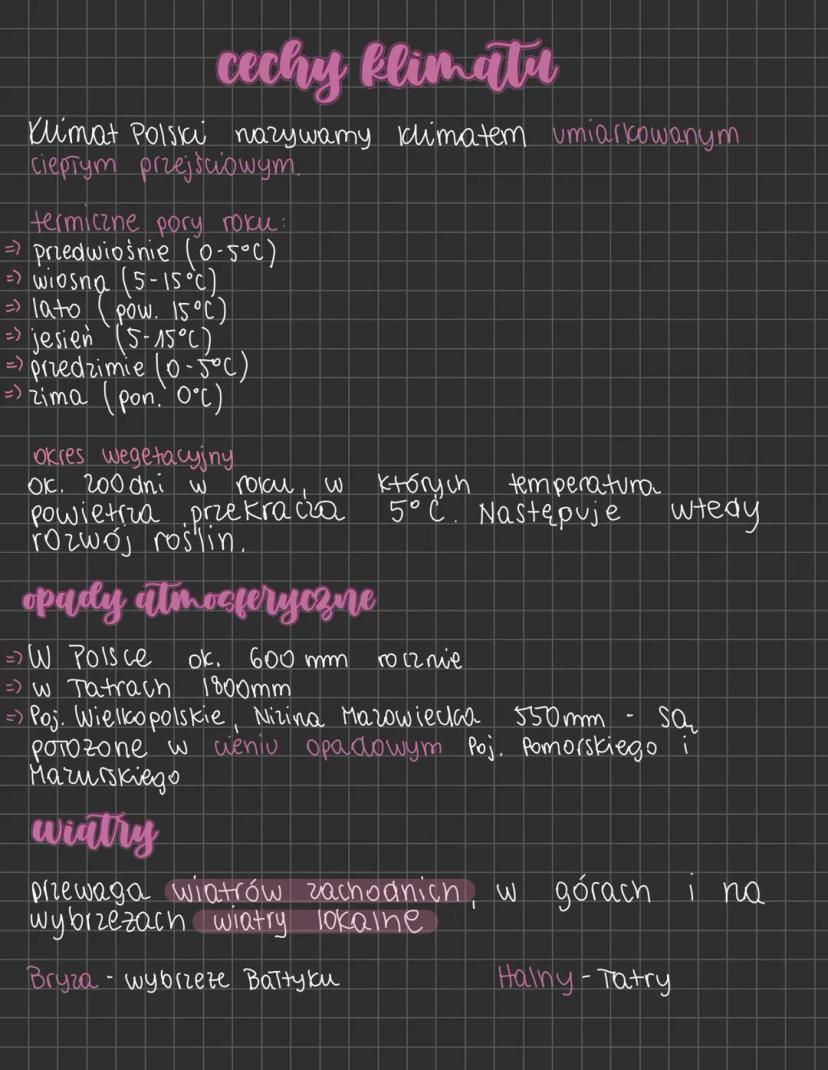 cechy klimatu
Klimat Polski nazywamy klimatem umiarkowanym
ciepłym przejściowym.
termiczne pory roku:
=> przedwiośnie (0-5°C)
=> wiosna (5-15°C)
=> lato (pow. 15°C)
=> jesień (5-15°C)
=> przedzimie (0-5°C)
=> zima (pon. 0°C)
okres wegetacyjny
ok. 200 dni w roku, w których temperatura
powietrza przekracza 5°C. Następuje wtedy
rozwój roślin.
opady atmosferyczne
=> W Polsce ok. 600 mm rocznie
=> w Tatrach 1800mm
=> Poj. Wielkopolskie, Nizina Mazowiecka 550mm - są
położone w cieniu opadowym Poj. Pomorskiego i
Mazurskiego
wiatry
przewaga wiatrów zachodnich, w górach i na
wybrzeżach wiatry lokalne
Bryza - wybrzeże Bałtyku Halny - Tatry